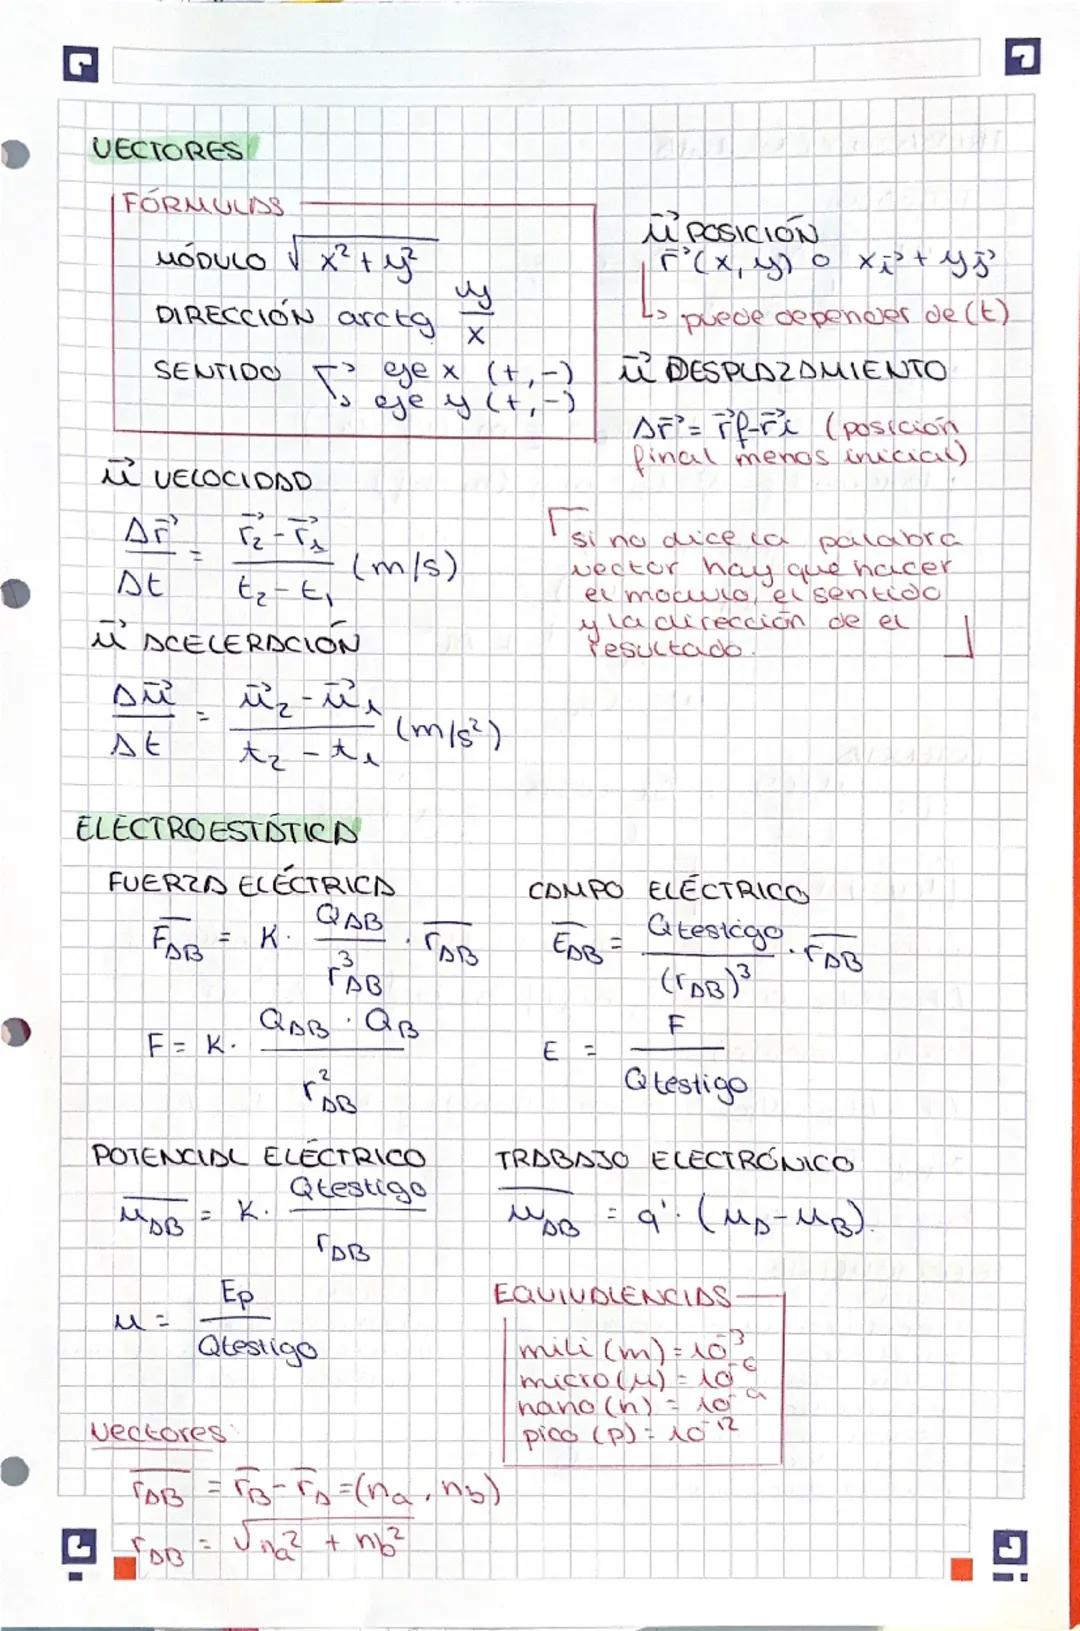 VECTORES
FÓRMULAS
MÓDULO √x² + y²
DIRECCIÓN arctg y/x
SENTIDO → eje x (+,-)
↘ eje y (+,-)
v⃗ POSICIÓN
r⃗ (x, y) o x i⃗ + y j⃗
↳ puede depender de (t)
v⃗ DESPLAZAMIENTO
Δr⃗ = r⃗f - r⃗i (posición
final menos inicial)
v⃗ VELOCIDAD
Δr⃗/Δt = (r⃗₂ - r⃗₁)/(t₂ - t₁) (m/s)
si no dice la palabra
vector hay que hacer
el modulo, el sentido
y la dirección de el
resultado.
v⃗ ACELERACIÓN
Δv⃗/Δt = (v⃗₂ - v⃗₁)/(t₂ - t₁) (m/s²)
ELECTROESTÁTICA
FUERZA ELÉCTRICA
F̅AB = K · QAB/r³AB · r̅AB
F = K · (QAB · QB)/r²AB
CAMPO ELÉCTRICO
E̅AB = Qtestigo/(rAB)³ · r̅AB
E = F/Qtestigo
POTENCIAL ELÉCTRICO
V̅AB = K · Qtestigo/rAB
V = Ep/Qtestigo
TRABAJO ELECTRÓNICO
W̅AB = q' · (VA - VB).
EQUIVALENCIAS
mili (m) = 10⁻³
micro (μ) = 10⁻⁶
nano (n) = 10⁻⁹
pico (p) = 10⁻¹²
Vectores:
r̅AB = r̅B - r̅A = (na, nb)
rAB = √na² + nb²